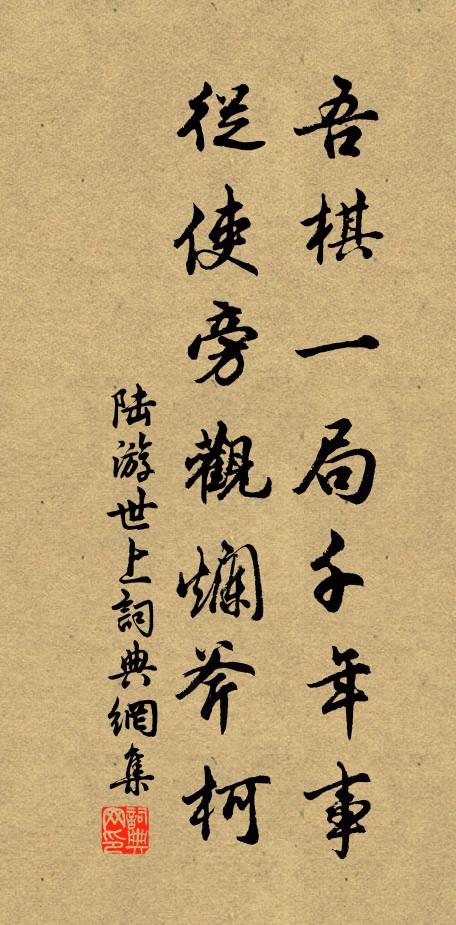 吾棋一局千年事
從使旁觀爛斧柯
陸游世上詞典網集
詞典網印